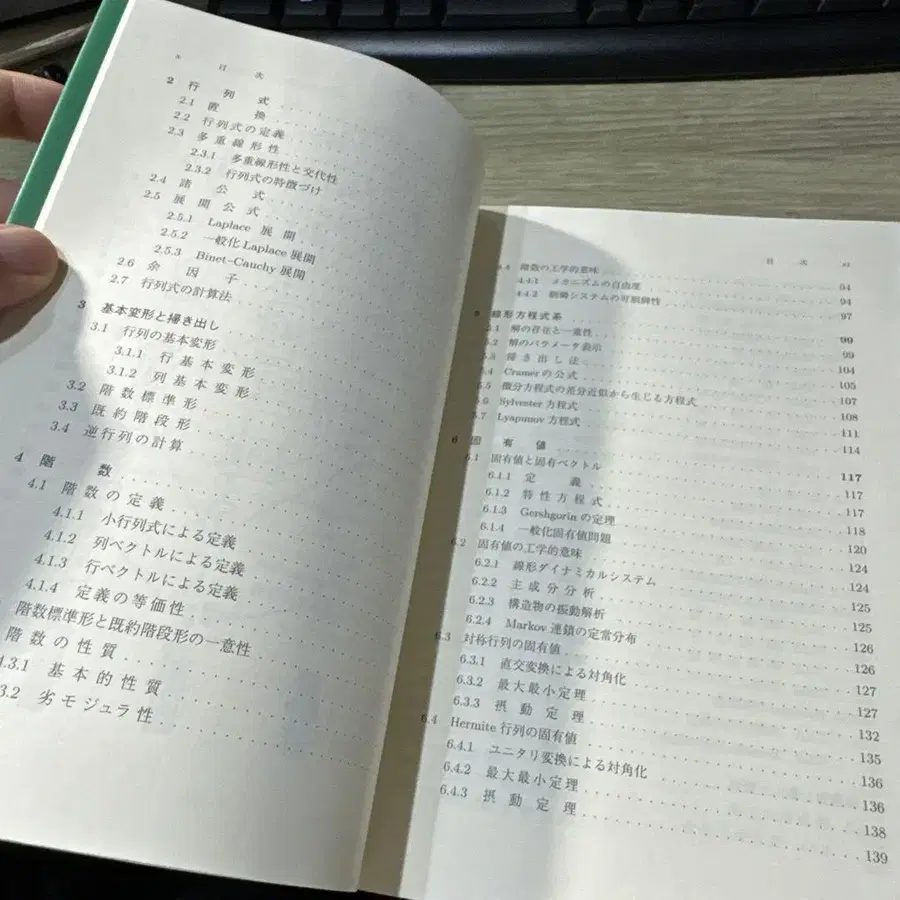 x 目 次
2 行 列 式
2.1 置 換
2.2 行列式の定義
2.3 多重線形性
2.3.1 多重線形性と交代性
2.3.2 行列式の特徴づけ
2.4 諸 公 式
2.5 展開公式
2.5.1 Laplace 展開
2.5.2 一般化 Laplace 展開
2.5.3 Binet–Cauchy 展開
2.6 余 因 子
2.7 行列式の計算法
3 基本変形と掃き出し
3.1 行列の基本変形
3.1.1 行基本変形
3.1.2 列基本変形
3.2 階数標準形
3.3 既約階段形
3.4 逆行列の計算
4 階 数
4.1 階数の定義
4.1.1 小行列式による定義
4.1.2 列ベクトルによる定義
4.1.3 行ベクトルによる定義
4.1.4 定義の等価性
階数標準形と既約階段形の一意性
階数の性質
4.3.1 基本的性質
3.2 劣モジュラ性
目 次 xi
4.4 階数の工学的意味 94
4.4.1 メカニズムの自由度 94
4.4.2 制御システムの可制御性 97
5 線形方程式系 99
5.1 解の存在と一意性 99
5.2 解のパラメータ表示 104
5.3 掃き出し法 105
5.4 Cramer の公式 107
5.5 微分方程式の差分近似から生じる方程式 108
5.6 Sylvester 方程式 111
5.7 Lyapunov 方程式 114
6 固 有 値 117
6.1 固有値と固有ベクトル 117
6.1.1 定 義 117
6.1.2 特性方程式 118
6.1.3 Gershgorin の定理 120
6.1.4 一般化固有値問題 124
6.2 固有値の工学的意味 124
6.2.1 線形ダイナミカルシステム 125
6.2.2 主成分分析 125
6.2.3 構造物の振動解析 126
6.2.4 Markov 連鎖の定常分布 126
6.3 対称行列の固有値 127
6.3.1 直交変換による対角化 127
6.3.2 最大最小定理 132
6.3.3 摂動定理 135
6.4 Hermite 行列の固有値 136
6.4.1 ユニタリ変換による対角化 136
6.4.2 最大最小定理 138
6.4.3 摂動定理 139